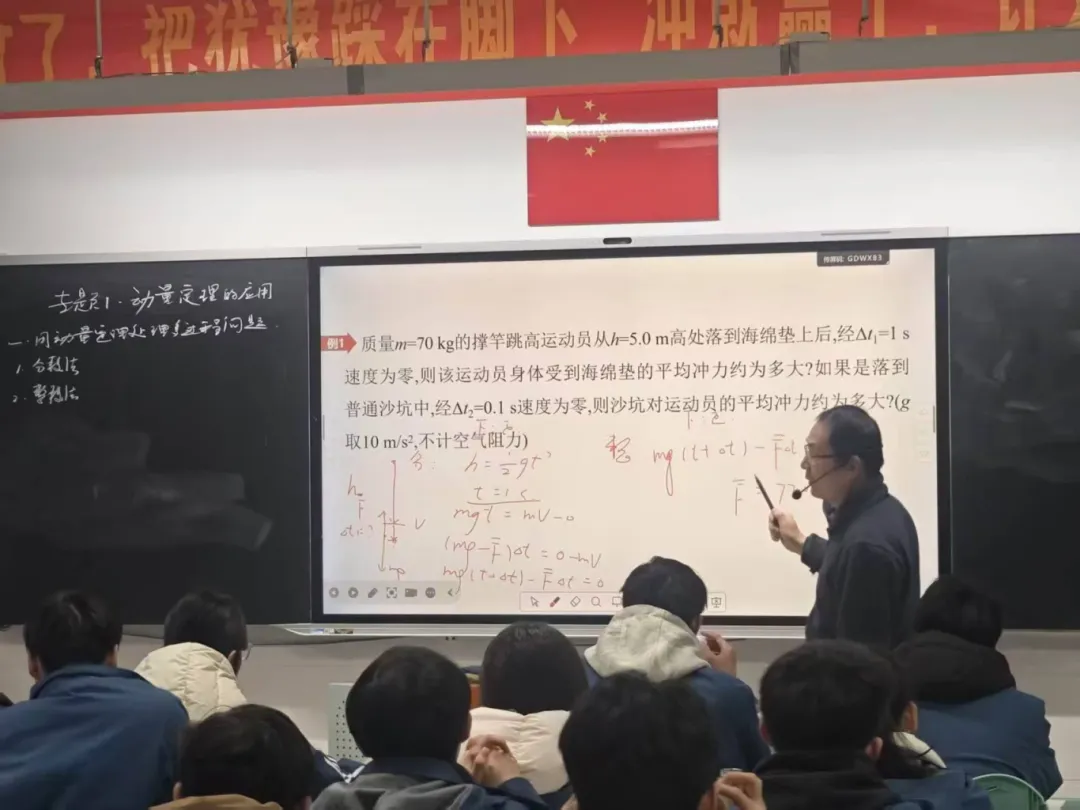 把犹豫踩在脚下 冲就赢了
传屏码: GDWX83
专题1. 动量定理的应用
一. 用动量定理处理多过程问题.
1. 分段法
2. 整段法
例1 质量m=70 kg的撑竿跳高运动员从h=5.0 m高处落到海绵垫上后,经Δt₁=1 s
速度为零,则该运动员身体受到海绵垫的平均冲力约为多大?如果是落到
普通沙坑中,经Δt₂=0.1 s速度为零,则沙坑对运动员的平均冲力约为多大?(g
取10 m/s²,不计空气阻力)
h=½gt²
t=1s
mgt=mV-0
(mg-F̅)Δt=0-mV
mg(t+Δt)-F̅Δt=0
h
F̅
V
mg
mg(t+Δt)-F̅Δt
F̅=7